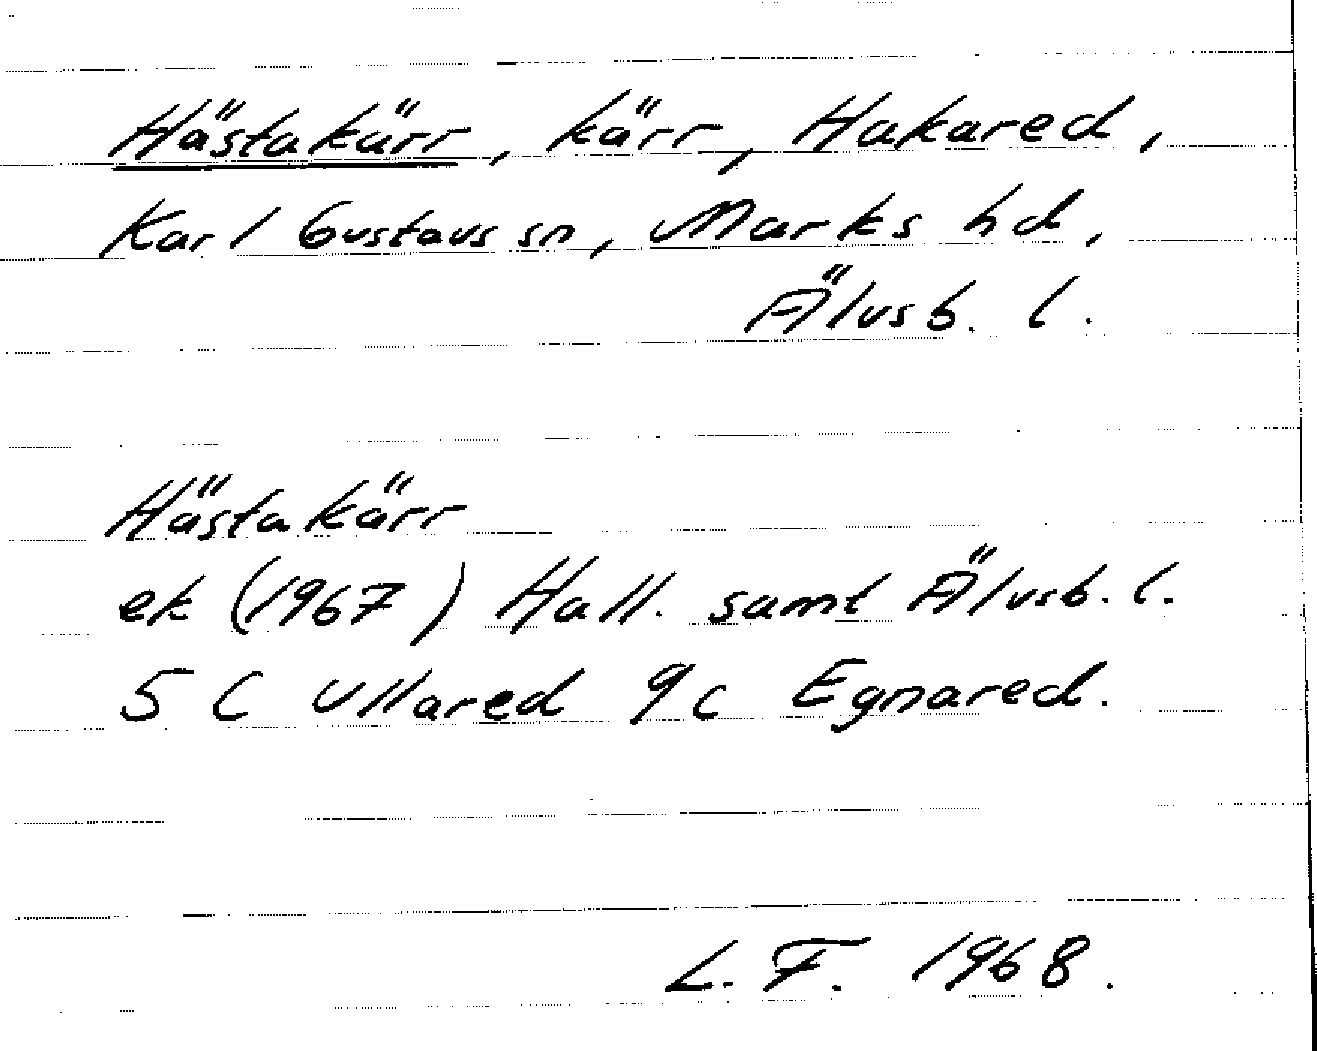 Hästakärr, kärr, Hakared,
Karl Gustavs sn, Marks hd,
Älvsb. l.
Hästakärr
ek (1967) Hall. samt Älvsb. l.
5 C Ullared 9 c Egnared.
L. F. 1968.